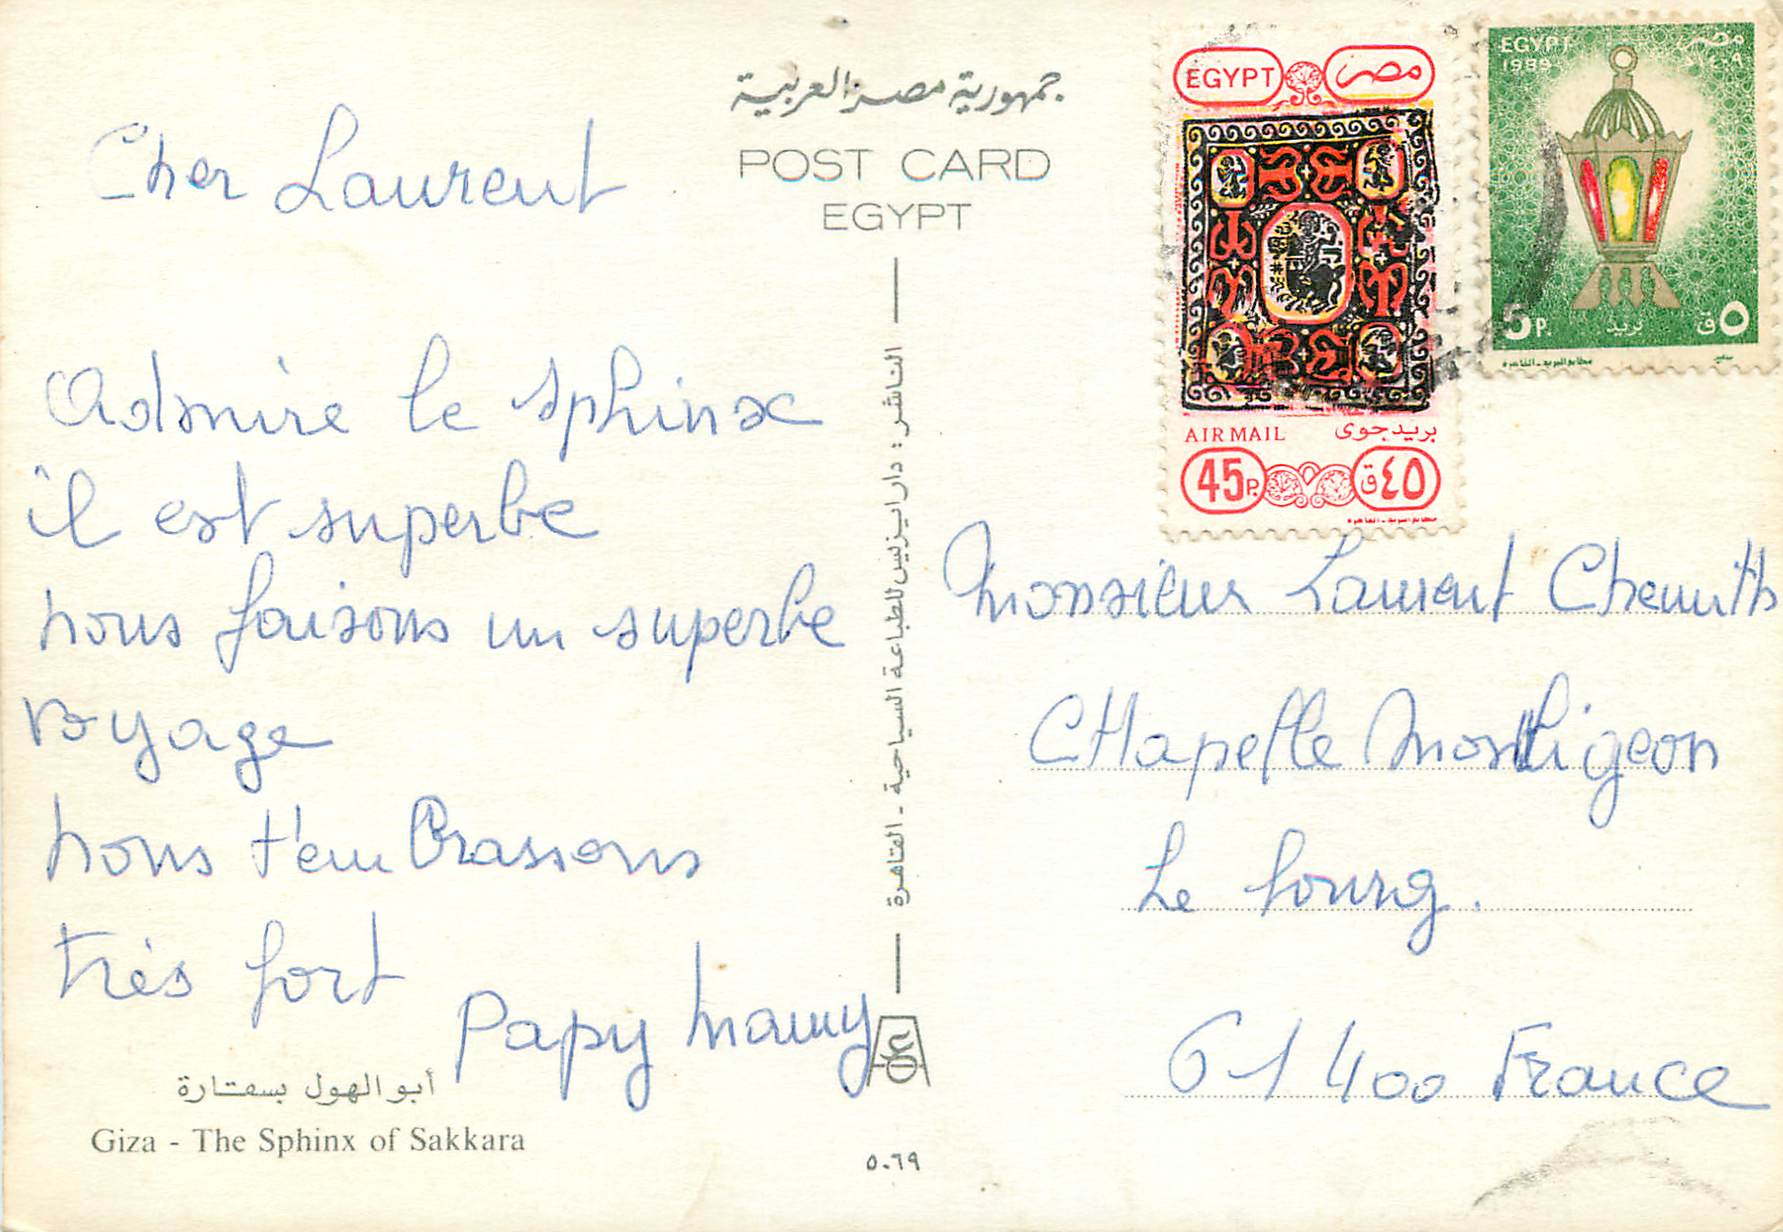 Cher Laurent
Admire le sphinx
il est superbe
nous faisons un superbe
voyage
nous t'embrassons
très fort
Papy Mamy
أبو الهول بسقارة
Giza - The Sphinx of Sakkara
جمهورية مصر العربية
POST CARD
EGYPT
الناشر : دار ايزيس للطباعة السياحية - القاهرة
٥٠٦٩
EGYPT مصر
AIR MAIL بريد جوى
45P. ٤٥ق
EGYPT مصر
1989 ١٤٠٩
5P. بريد ٥ق
مطابع البريد - القاهرة
Monsieur Laurent
CHapelle Montligeon
Le bourg.
61400 France